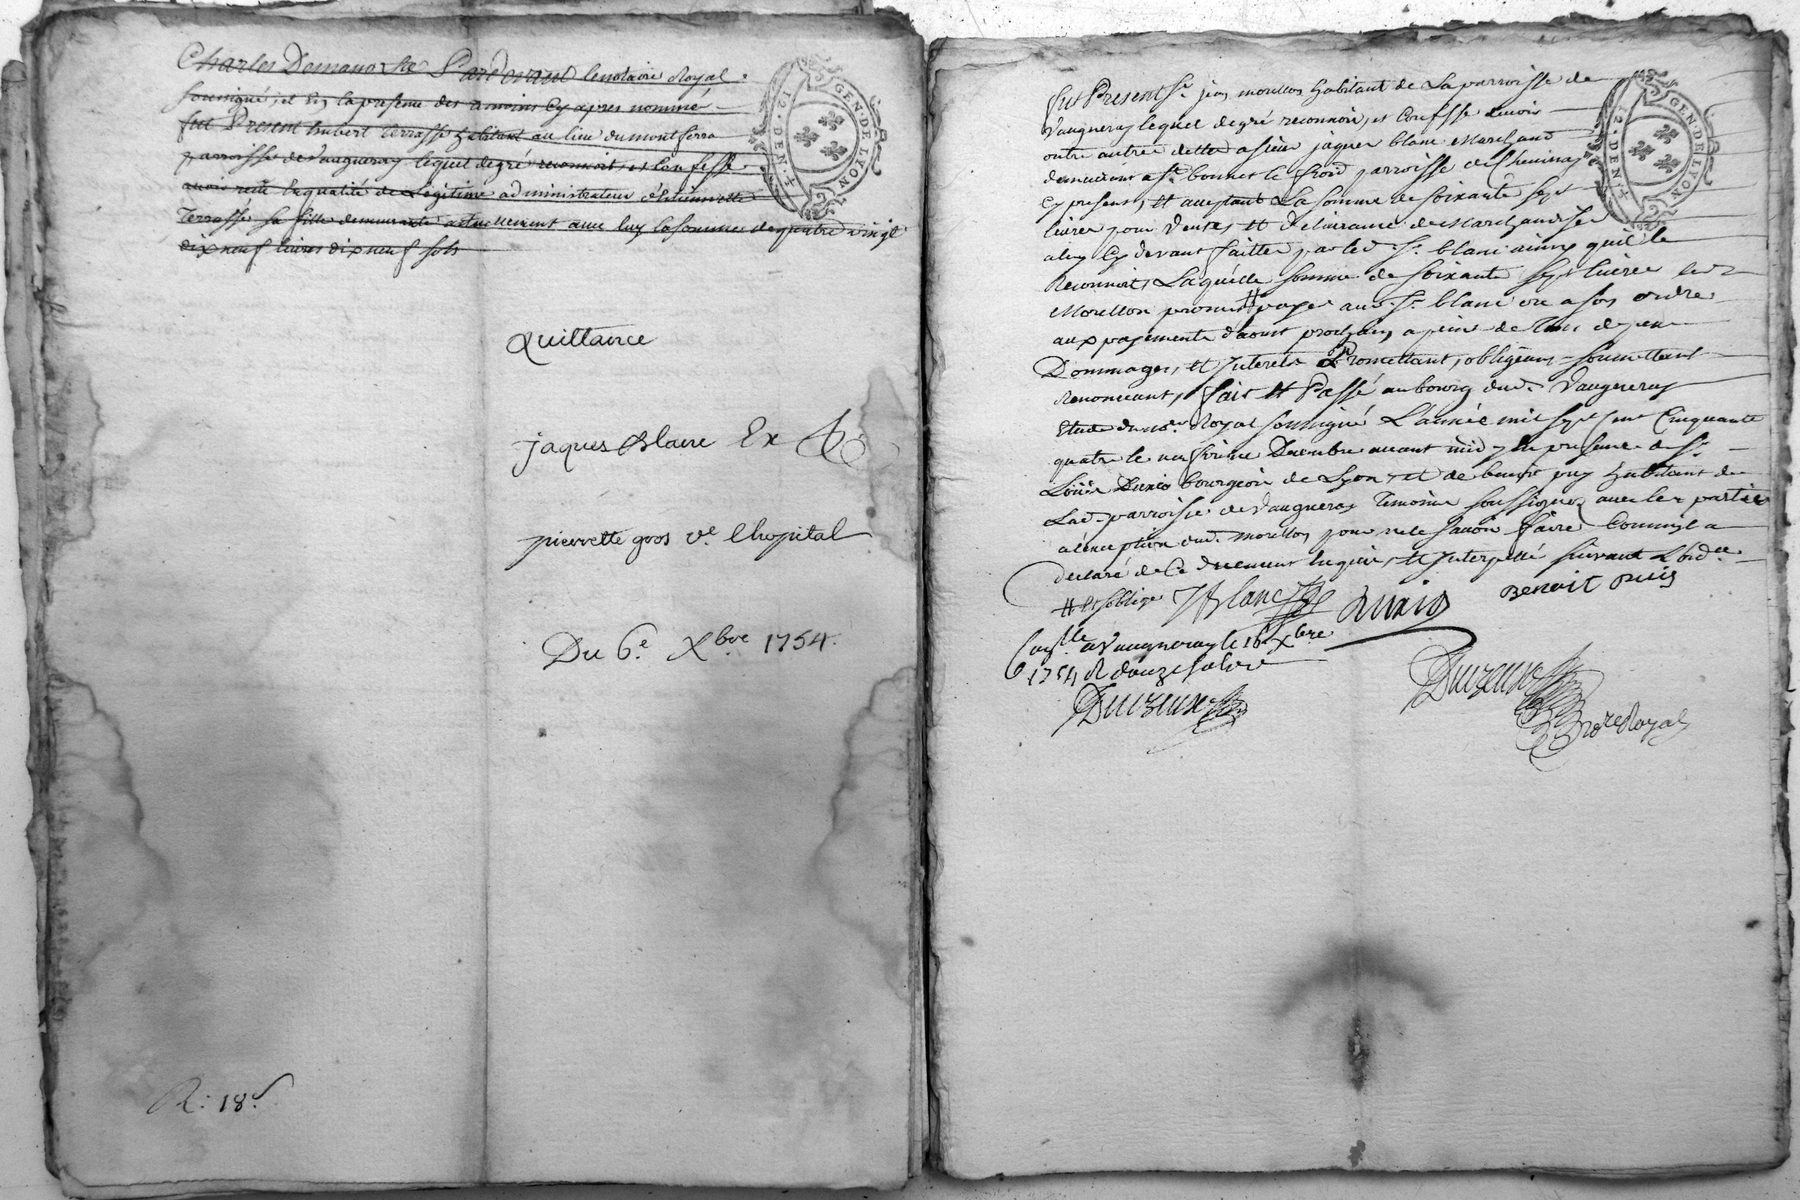 Charles Demanoche Pardevant le notaire Royal
soussigné, et En la presence des temoins Cy apres nommé
fut Present hubert terrasse habitant au lieu du montferra
parroisse de Vaugneray lequel de gré reconnoit, et Confesse
avoir reçu En qualité de Legitime administrateur d'Etiennette
Terrasse sa fille demeurante actuellement avec luy la somme de quatre Vingt
dix neuf livres dix neuf sols
GEN. DE LYON
12. DEN. 4.
Quittance
jaques Blanc Ex
pierrette gros ve. Lhopital
Du 6e. Xbre 1754.
R: 18s.
fut Present Sr. jean morellon habitant de La parroisse de
Vaugneray lequel de gré reconnoit, et Confesse devoir
outre autre dette a sieur jaques blanc Marchand
demeurant a St. bonnet le froid parroisse de Chevinay
Cy present, et acceptant La somme de soixante sept
livres pour Ventes et Delivrance de Marchandise
a luy Cy devant faittes par led. Sr. blanc ainsy qu'il le
Reconnoit, Laquelle somme de soixante sept livres led.
Morellon promet # payer aud. Sr. blanc ou a son ordre
aux payements d'aoust prochain, a peine de tous depens
Dommages, et Interets Promettant, obligeant, soumettant
Renonceant, fait et Passé au bourg dud. Vaugneray
Etude du no.re Royal soussigné L'année mil sept cent Cinquante
quatre le Decembre avant midy En presence de Sr.
Loüis bourgeois de Lyon, et de benoit puy habitant de
Lad. parroisse de Vaugneray Temoins soussignez avec les parties
a l'exception dud. morellon pour ne le sçavoir faire Comme il a
declaré de Ce duement Enquis, et Interpellé suivant L'ord.ce
# et s'oblige JBlanc Benoit puis
Con.lle a Vaugneray le 16. Xbre
1754 R douze sols
Duvzeux
Duvzeux
no.re Royal
GEN. DE LYON
12. DEN. 4.